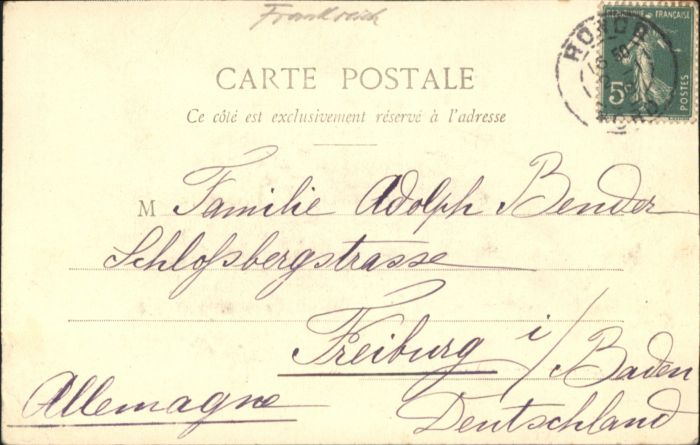 Frankreich
RÉPUBLIQUE FRANÇAISE
5
POSTES
CARTE POSTALE
Ce côté est exclusivement réservé à l'adresse
M Familie Adolph Bender
Schloßbergstrasse
Freiburg i/Baden
Allemagne
Deutschland